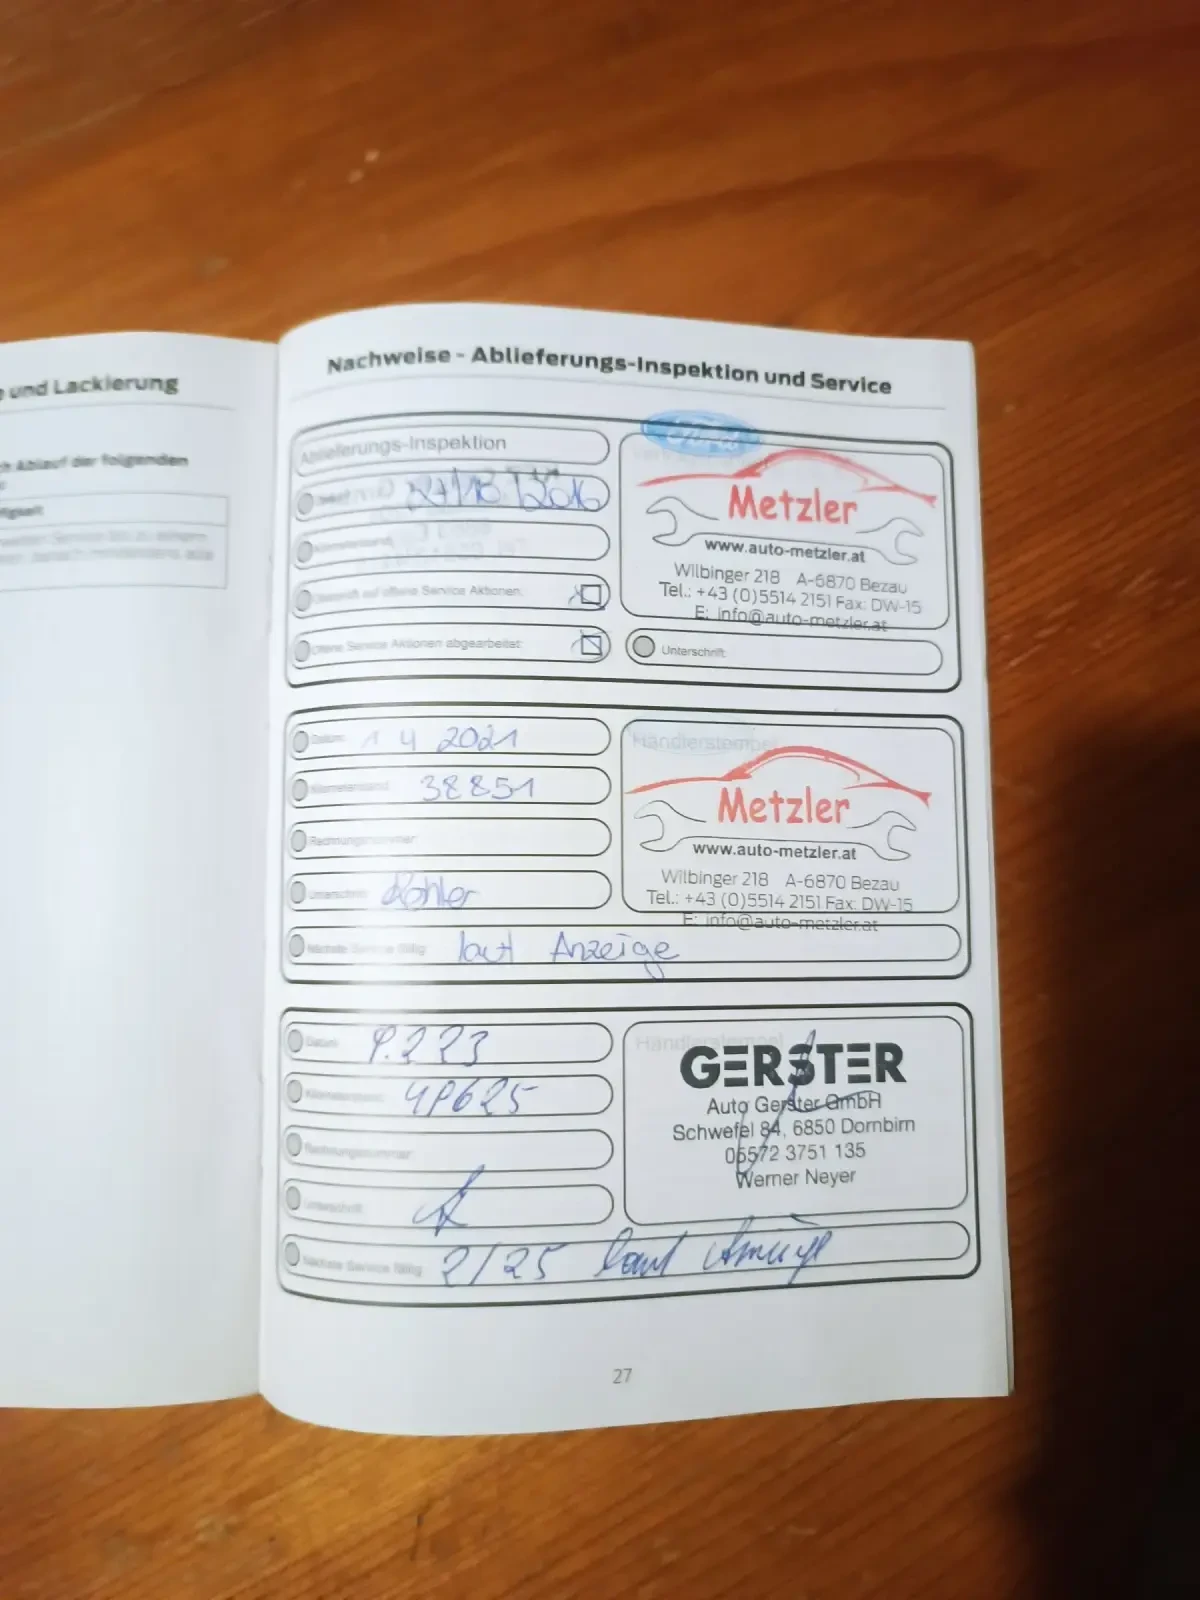 und Lackierung
Ablauf der folgenden
Nachweise - Ablieferungs-Inspektion und Service
Ablieferungs-Inspektion
2016
Kilometerstand:
offene Service Aktionen:
Offene Service Aktionen abgearbeitet:
Metzler
www.auto-metzler.at
Wilbinger 218 A-6870 Bezau
Tel.: +43 (0)5514 2151 Fax: DW-15
E: info@auto-metzler.at
Unterschrift:
Datum: 1 4 2021
Kilometerstand: 38851
Rechnungsnummer:
Unterschrift:
Nächste Service fällig: laut Anzeige
Händlerstempel
Metzler
www.auto-metzler.at
Wilbinger 218 A-6870 Bezau
Tel.: +43 (0)5514 2151 Fax: DW-15
E: info@auto-metzler.at
Datum: 9.2 23
Kilometerstand: 49625
Rechnungsnummer:
Unterschrift:
Nächste Service fällig: 2/25 laut Anzeige
Händlerstempel
GERSTER
Auto Gerster GmbH
Schwefel 84, 6850 Dornbirn
05572 3751 135
Werner Neyer
27